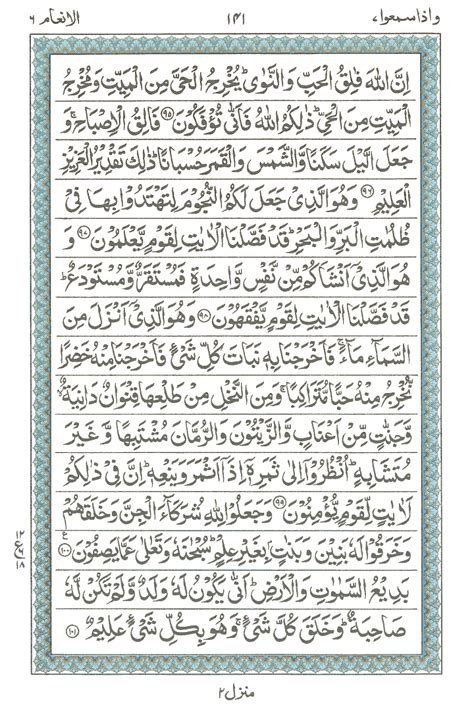 واذا سمعوا ٧ ١٤١ الانعام ٦
اِنَّ اللّٰهَ فَالِقُ الْحَبِّ وَالنَّوٰى ؕ يُخْرِجُ الْحَیَّ مِنَ الْمَیِّتِ وَمُخْرِجُ
الْمَیِّتِ مِنَ الْحَیِّ ؕ ذٰلِكُمُ اللّٰهُ فَاَنّٰى تُؤْفَكُوْنَ ﴿٩٥﴾ فَالِقُ الْاِصْبَاحِ ۚ وَ
جَعَلَ الَّیْلَ سَكَنًا وَّالشَّمْسَ وَالْقَمَرَ حُسْبَانًا ؕ ذٰلِكَ تَقْدِیْرُ الْعَزِیْزِ
الْعَلِیْمِ ﴿٩٦﴾ وَهُوَ الَّذِیْ جَعَلَ لَكُمُ النُّجُوْمَ لِتَهْتَدُوْا بِهَا فِیْ
ظُلُمٰتِ الْبَرِّ وَالْبَحْرِ ؕ قَدْ فَصَّلْنَا الْاٰیٰتِ لِقَوْمٍ یَّعْلَمُوْنَ ﴿٩٧﴾ وَ
هُوَ الَّذِیْۤ اَنْشَاَكُمْ مِّنْ نَّفْسٍ وَّاحِدَةٍ فَمُسْتَقَرٌّ وَّمُسْتَوْدَعٌ ؕ
قَدْ فَصَّلْنَا الْاٰیٰتِ لِقَوْمٍ یَّفْقَهُوْنَ ﴿٩٨﴾ وَهُوَ الَّذِیْۤ اَنْزَلَ مِنَ
السَّمَآءِ مَآءً ۚ فَاَخْرَجْنَا بِهٖ نَبَاتَ كُلِّ شَیْءٍ فَاَخْرَجْنَا مِنْهُ خَضِرًا
نُّخْرِجُ مِنْهُ حَبًّا مُّتَرَاكِبًا ۚ وَمِنَ النَّخْلِ مِنْ طَلْعِهَا قِنْوَانٌ دَانِیَةٌ
وَّجَنّٰتٍ مِّنْ اَعْنَابٍ وَّالزَّیْتُوْنَ وَالرُّمَّانَ مُشْتَبِهًا وَّغَیْرَ
مُتَشَابِهٍ ؕ اُنْظُرُوْۤا اِلٰى ثَمَرِهٖۤ اِذَاۤ اَثْمَرَ وَیَنْعِهٖ ؕ اِنَّ فِیْ ذٰلِكُمْ
لَاٰیٰتٍ لِّقَوْمٍ یُّؤْمِنُوْنَ ﴿٩٩﴾ وَجَعَلُوْا لِلّٰهِ شُرَكَآءَ الْجِنَّ وَخَلَقَهُمْ
وَخَرَقُوْا لَهٗ بَنِیْنَ وَبَنٰتٍۭ بِغَیْرِ عِلْمٍ ؕ سُبْحٰنَهٗ وَتَعٰلٰى عَمَّا یَصِفُوْنَ ﴿١٠٠﴾
بَدِیْعُ السَّمٰوٰتِ وَالْاَرْضِ ؕ اَنّٰى یَكُوْنُ لَهٗ وَلَدٌ وَّلَمْ تَكُنْ لَّهٗ
صَاحِبَةٌ ؕ وَخَلَقَ كُلَّ شَیْءٍ ۚ وَهُوَ بِكُلِّ شَیْءٍ عَلِیْمٌ ﴿١٠١﴾
منزل ٢